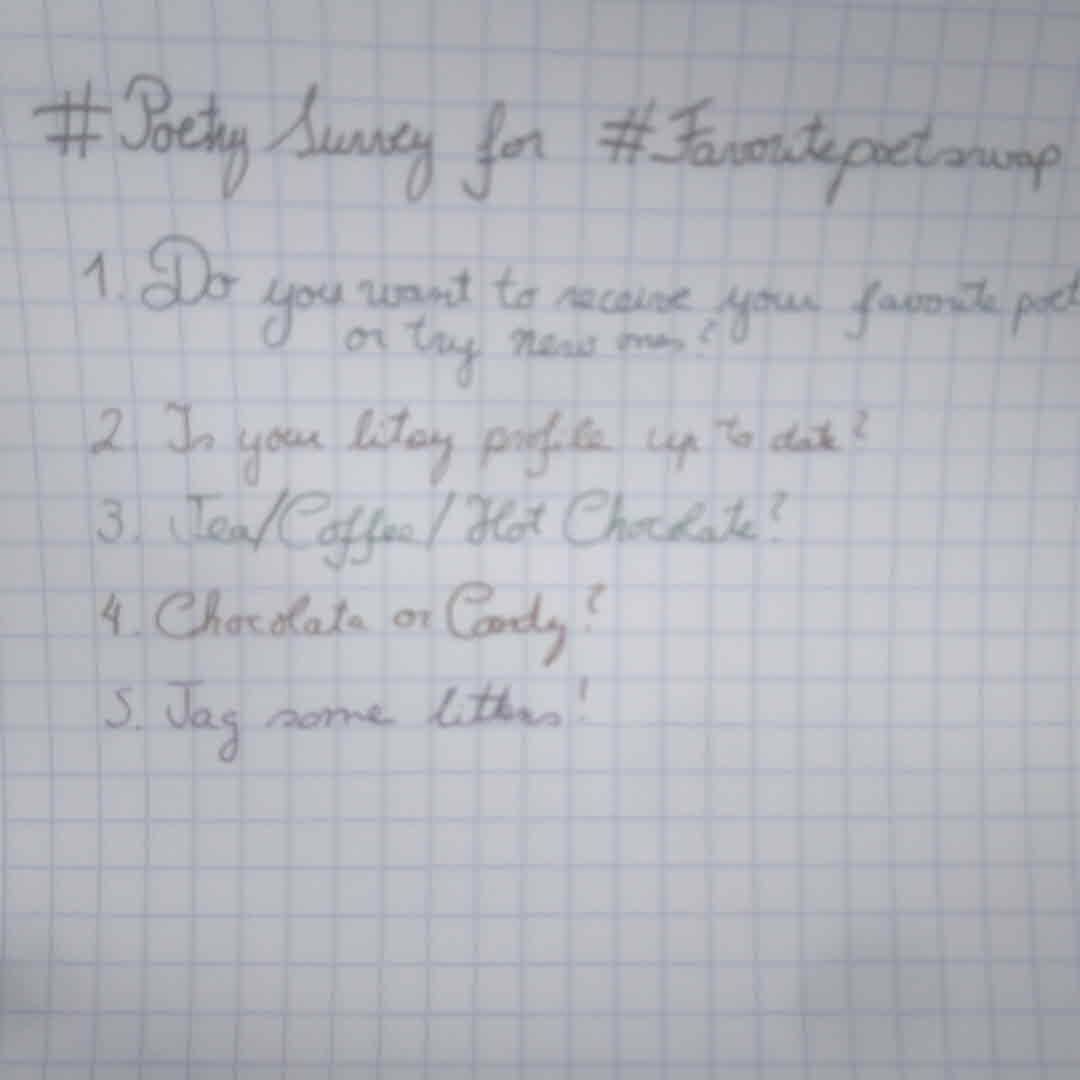 #Poetry Survey for #Favoritepoetswap
1. Do you want to receive your favorite poet
or try new ones?
2. Is your litsy profile up to date?
3. Tea/Coffee/Hot Chocolate?
4. Chocolate or Candy?
5. Tag some litters!